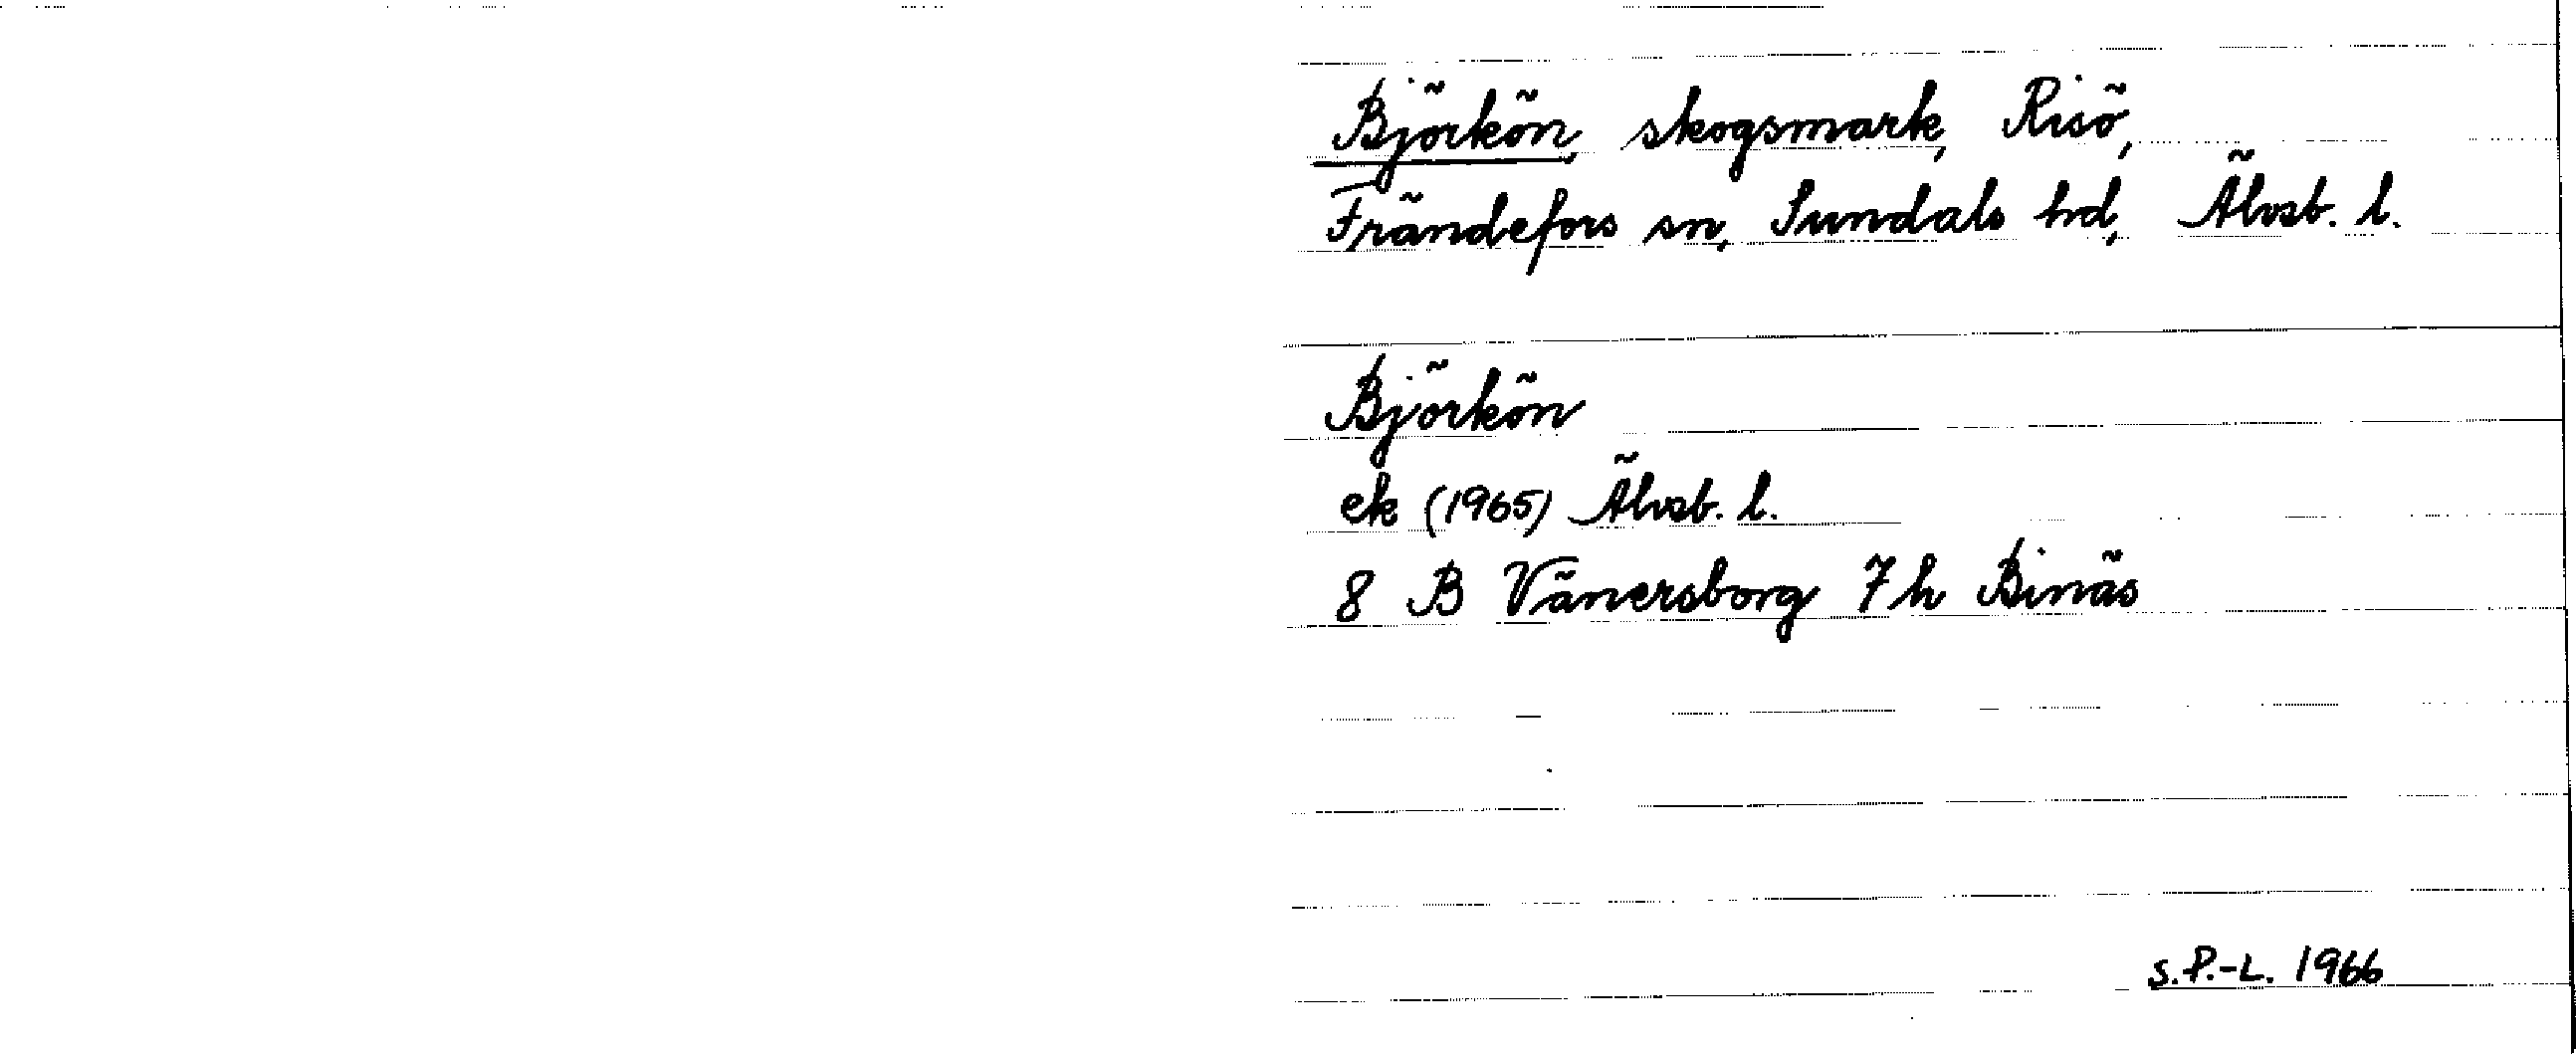 Björkön, skogsmark, Risö,
Frändefors sn, Sundals hd, Älvsb. l.
Björkön
ek (1965) Älvsb. l.
8 B Vänersborg 7 h Binäs
S.P.-L. 1966